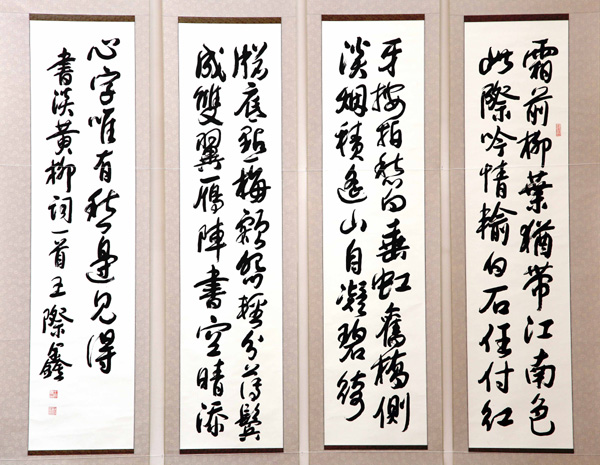 霜前柳葉猶帶江南色
此際吟情輸白石任付紅
牙按拍愁向垂虹舊橋側
淡烟積遙山自凝碧綺
牕底點梅額輕分薄鬢
成雙翼雁陣書空晴添
心字唯有愁邊見得
書淡黃柳詞一首王際鑫